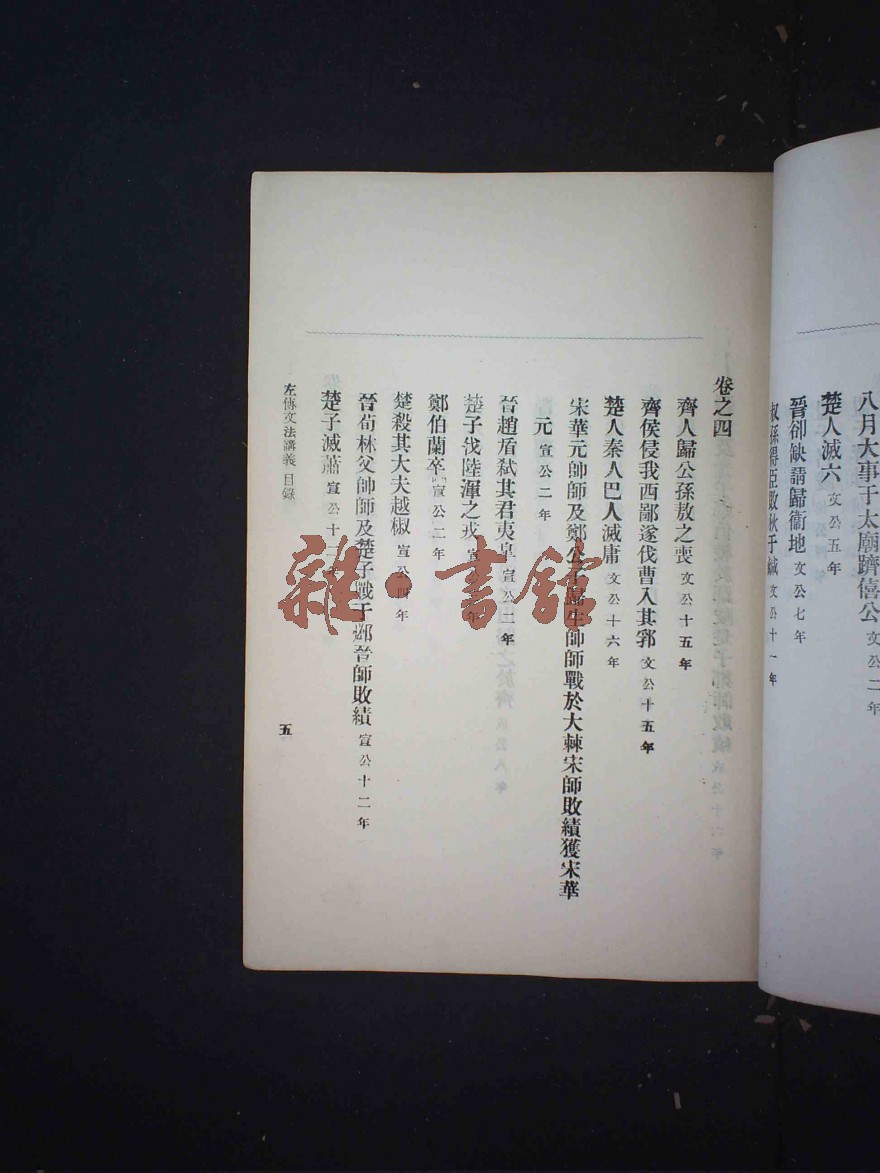 八月大事于太廟躋僖公 文公二年
楚人滅六 文公五年
晉卻缺請歸衞地 文公七年
叔孫得臣敗狄于鹹 文公十一年
卷之四
齊人歸公孫敖之喪 文公十五年
齊侯侵我西鄙遂伐曹入其郛 文公十五年
楚人秦人巴人滅庸 文公十六年
宋華元帥師及鄭公子歸生帥師戰於大棘宋師敗績獲宋華
元 宣公二年
晉趙盾弑其君夷皐 宣公二年
楚子伐陸渾之戎 宣公 年
鄭伯蘭卒 宣公二年
楚殺其大夫越椒 宣公四年
晉荀林父帥師及楚子戰于邲晉師敗績 宣公十二年
楚子滅蕭 宣公十二年
左傳文法講義 目錄
五
雜·書館